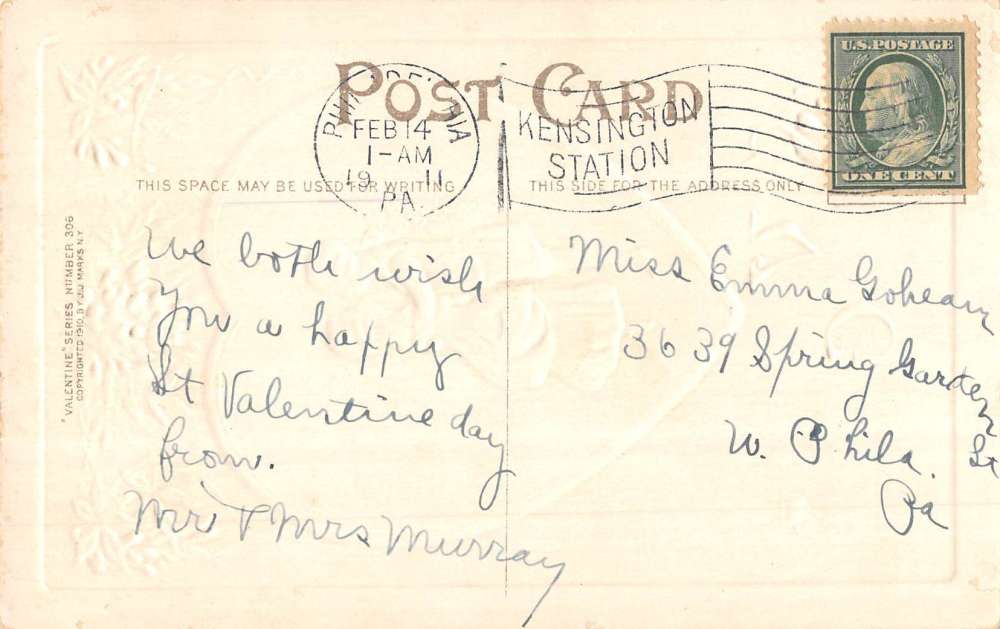 POST CARD
PHILADELPHIA
FEB 14
1-AM
19 11
PA
KENSINGTON
STATION
U.S. POSTAGE
ONE CENT
THIS SPACE MAY BE USED FOR WRITING
THIS SIDE FOR THE ADDRESS ONLY
"VALENTINE" SERIES NUMBER 306
COPYRIGHTED 1910, BY J.J. MARKS N.Y.
We both wish
you a happy
St Valentine day
from.
Mr & Mrs Murray
Miss Emma Gohean
3639 Spring Garden
St
W. Phila.
Pa